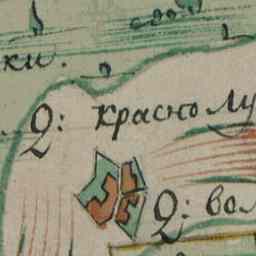 ки.
Д: красно лу
Д: вол